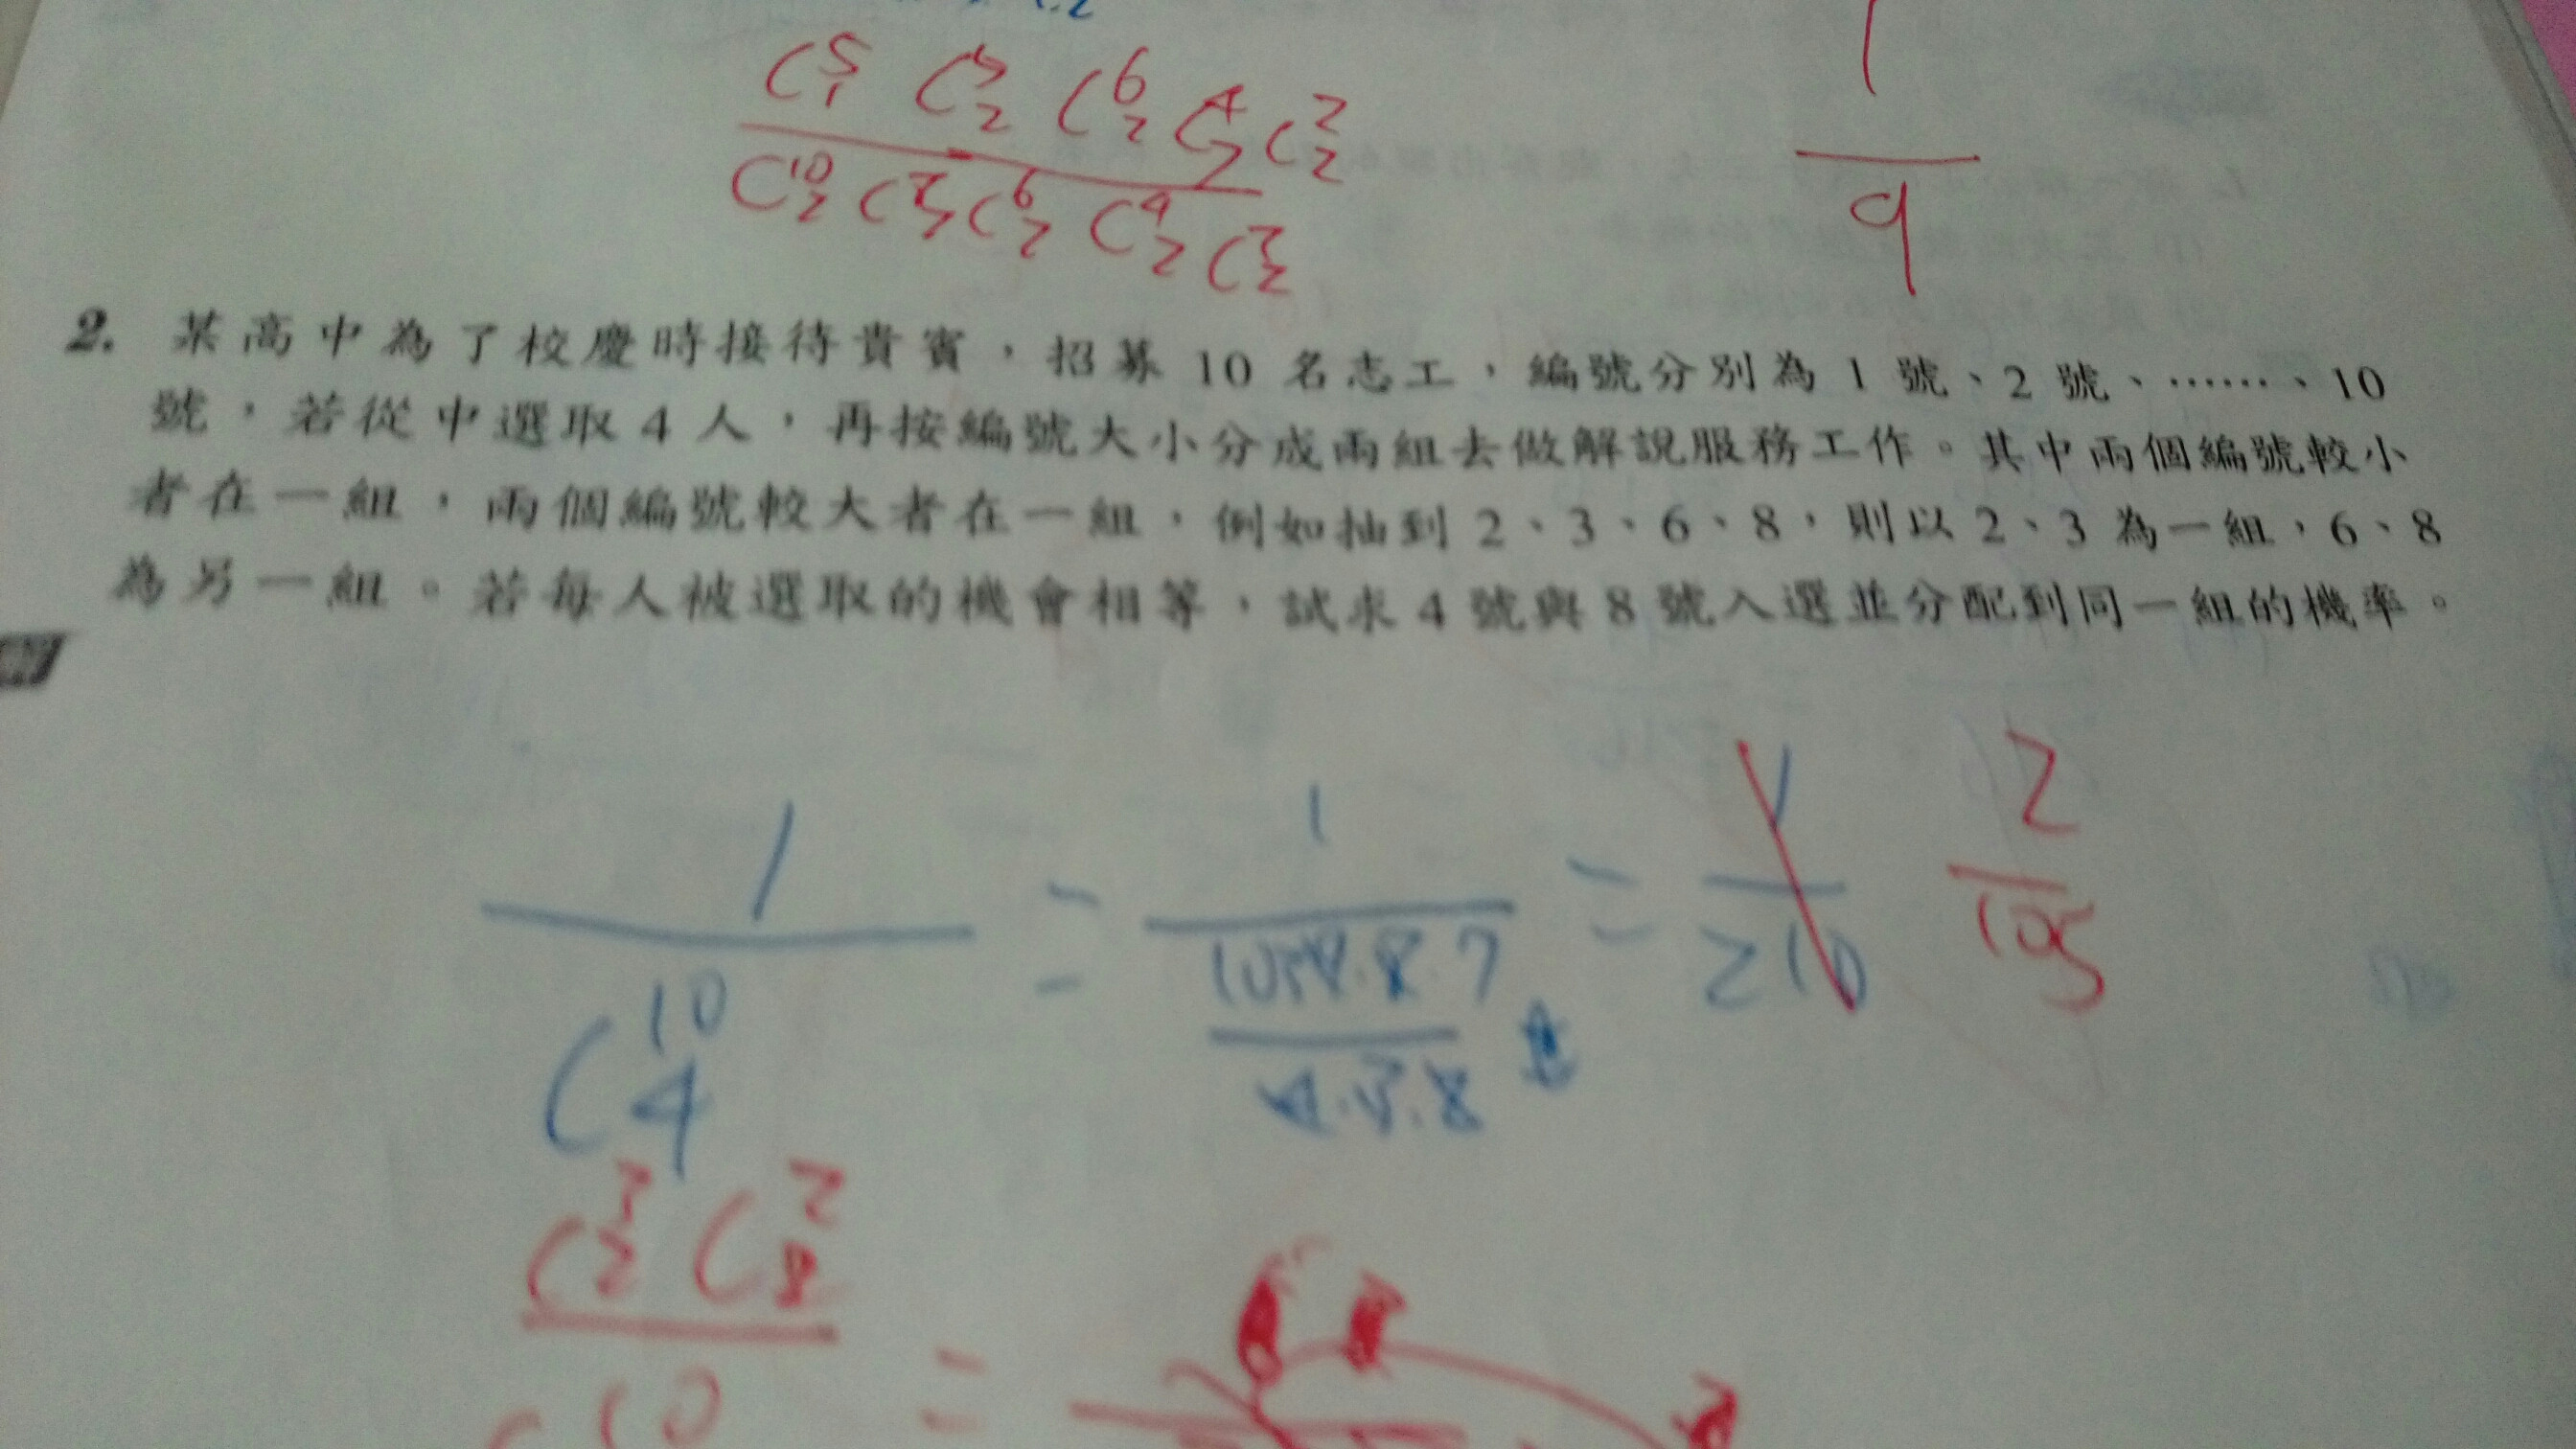 C⁵₁ C⁵₂ C⁶₂ C⁴₂ C²₂
C¹⁰₂ C⁶₂ C⁴₂ C²₂
1
9
2. 某高中為了校慶時接待貴賓，招募 10 名志工，編號分別為 1 號、2 號、……、10
號，若從中選取 4 人，再按編號大小分成兩組去做解說服務工作。其中兩個編號較小
者在一組，兩個編號較大者在一組，例如抽到 2、3、6、8，則以 2、3 為一組，6、8
為另一組。若每人被選取的機會相等，試求 4 號與 8 號入選並分配到同一組的機率。
1 = 1 = 1 2
C¹⁰₄ 10·9·8·7 210 105
4·3·2
10 =